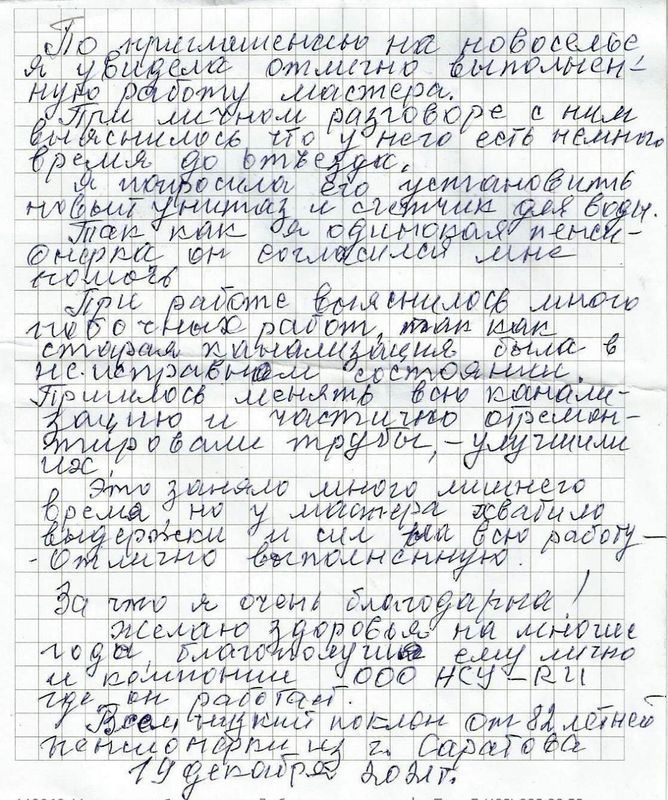 По приглашению на новоселье
я увидела отлично выполнен-
ную работу мастера.
При личном разговоре с ним
выяснилось что у него есть немного
время до отъезда.
Я попросила его установить
новый унитаз и счётчик для воды.
Так как я одинокая пенси-
онерка он согласился мне
помочь
При работе выяснилось много
побочных работ, так как
старая канализация была в
неисправном состоянии.
Пришлось менять всю канали-
зацию и частично отремон-
тировали трубы, – улучшили
их.
Это заняло много лишнего
время, но у мастера хватило
выдержки и сил на всю работу –
– отлично выполненную.
За что я очень благодарна!
Желаю здоровья на многие
года, благополучия ему лично
и компании ООО НСУ-RU
где он работает.
Всем низкий поклон от 82 летней
пенсионерки из г. Саратова
19 декабря 2021г.